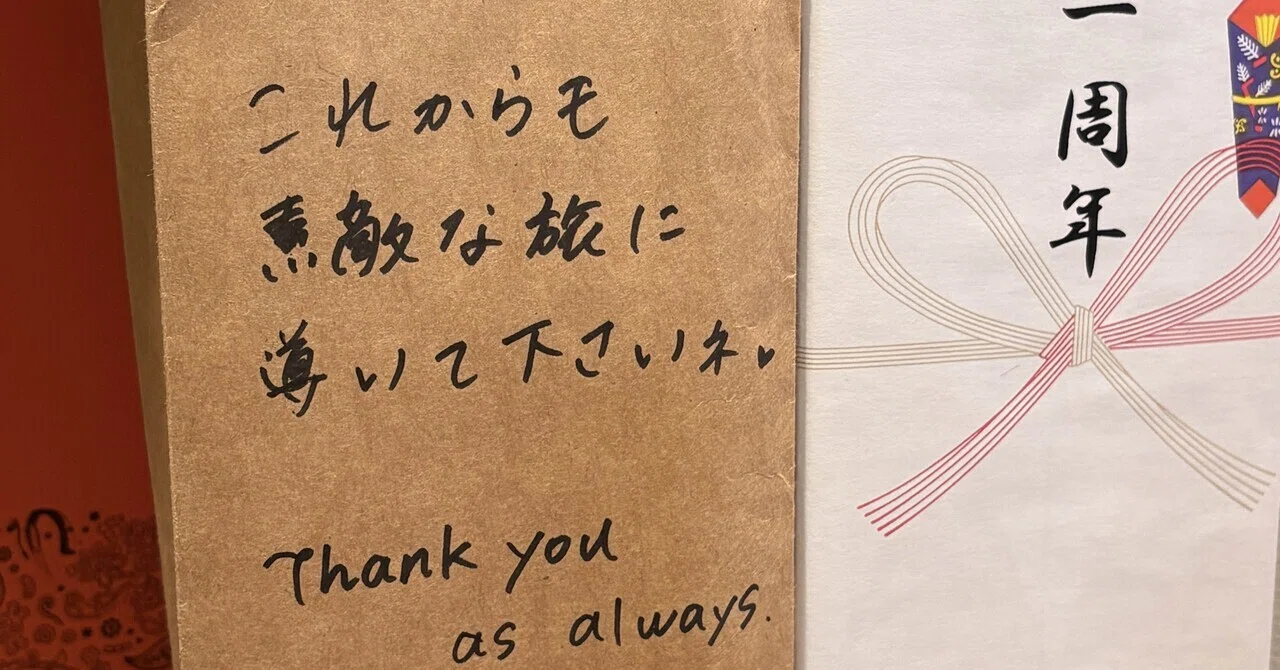 これからも
素敵な旅に
導いて下さいネ♥
Thank you
as always.
一周年